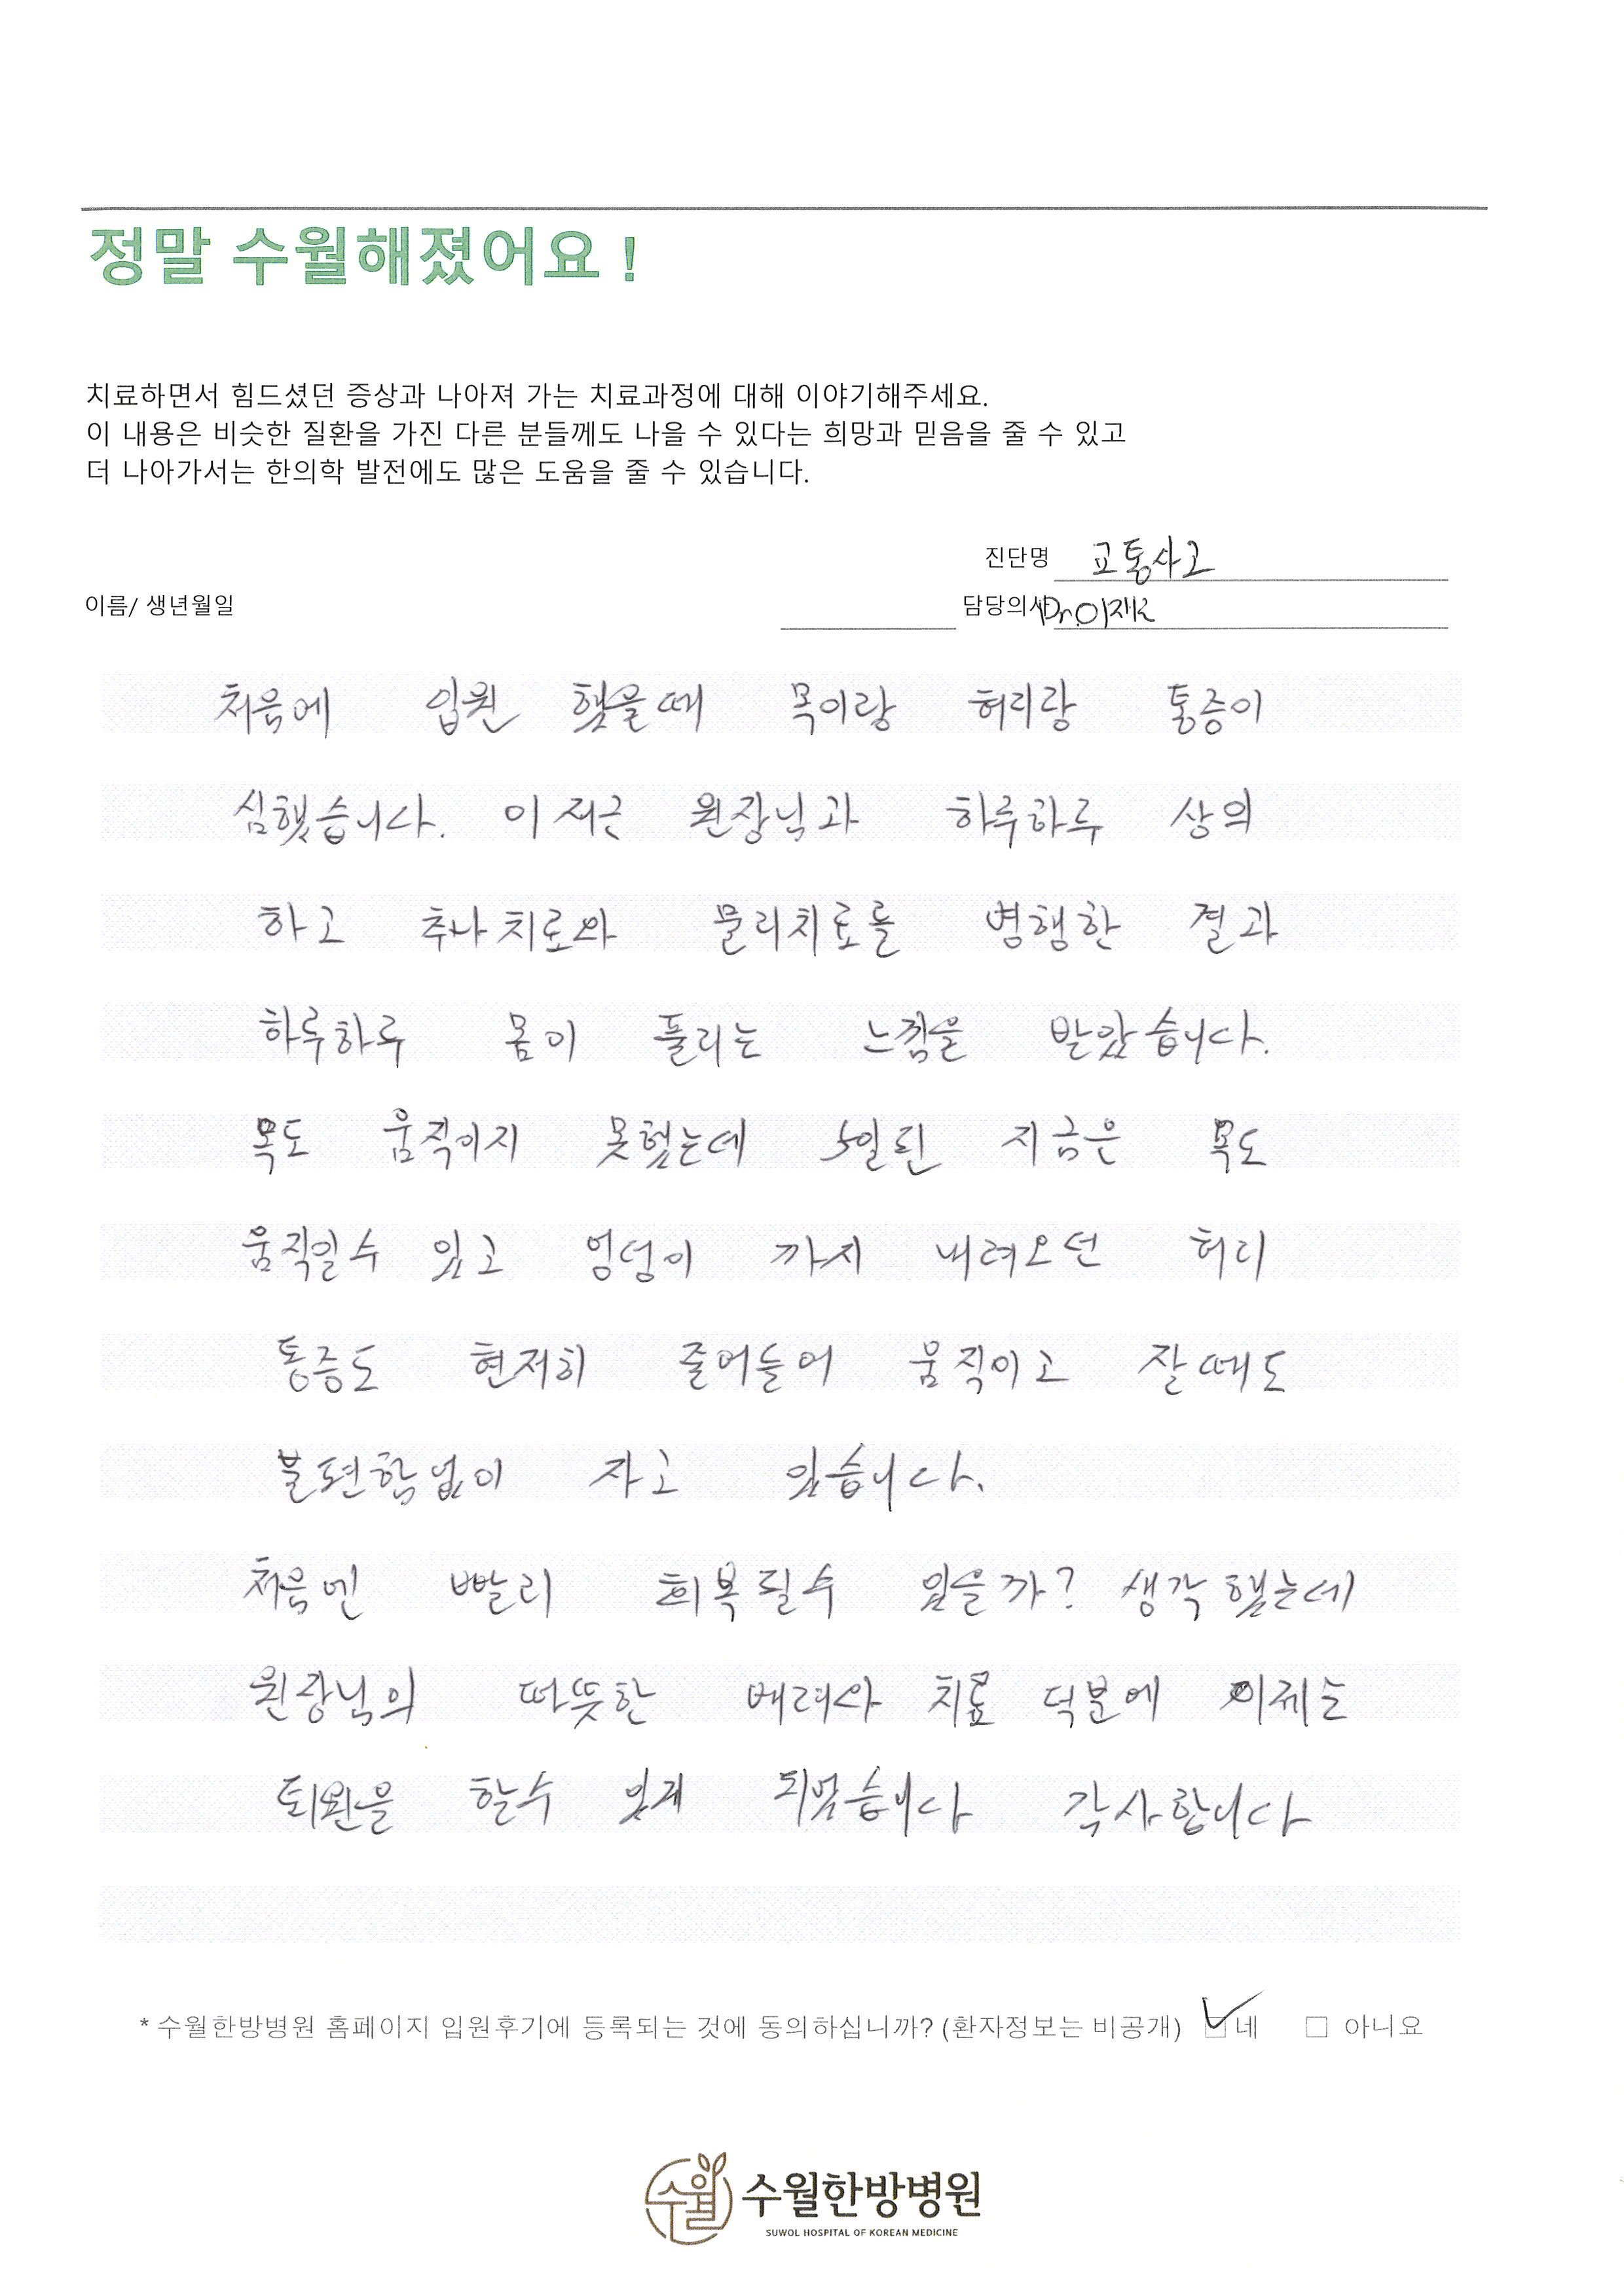 정말 수월해졌어요 !
치료하면서 힘드셨던 증상과 나아져 가는 치료과정에 대해 이야기해주세요.
이 내용은 비슷한 질환을 가진 다른 분들께도 나을 수 있다는 희망과 믿음을 줄 수 있고
더 나아가서는 한의학 발전에도 많은 도움을 줄 수 있습니다.
진단명 교통사고
이름/ 생년월일 담당의사 Dr.이재
처음에 입원 했을때 목이랑 허리랑 통증이
심했습니다. 이 원장님과 하루하루 상의
하고 추나치료와 물리치료를 병행한 결과
하루하루 몸이 풀리는 느낌을 받았습니다.
목도 움직이지 못했는데 5일된 지금은 목도
움직일수 있고 엉덩이 까지 내려오던 허리
통증도 현저히 줄어들어 움직이고 잘때도
불편함없이 자고 있습니다.
처음엔 빨리 회복될수 있을까? 생각했는데
원장님의 따뜻한 배려와 치료 덕분에 이제는
퇴원을 할수 있게 되었습니다 감사합니다
* 수월한방병원 홈페이지 입원후기에 등록되는 것에 동의하십니까? (환자정보는 비공개) 네 아니요
수월 수월한방병원
SUWOL HOSPITAL OF KOREAN MEDICINE